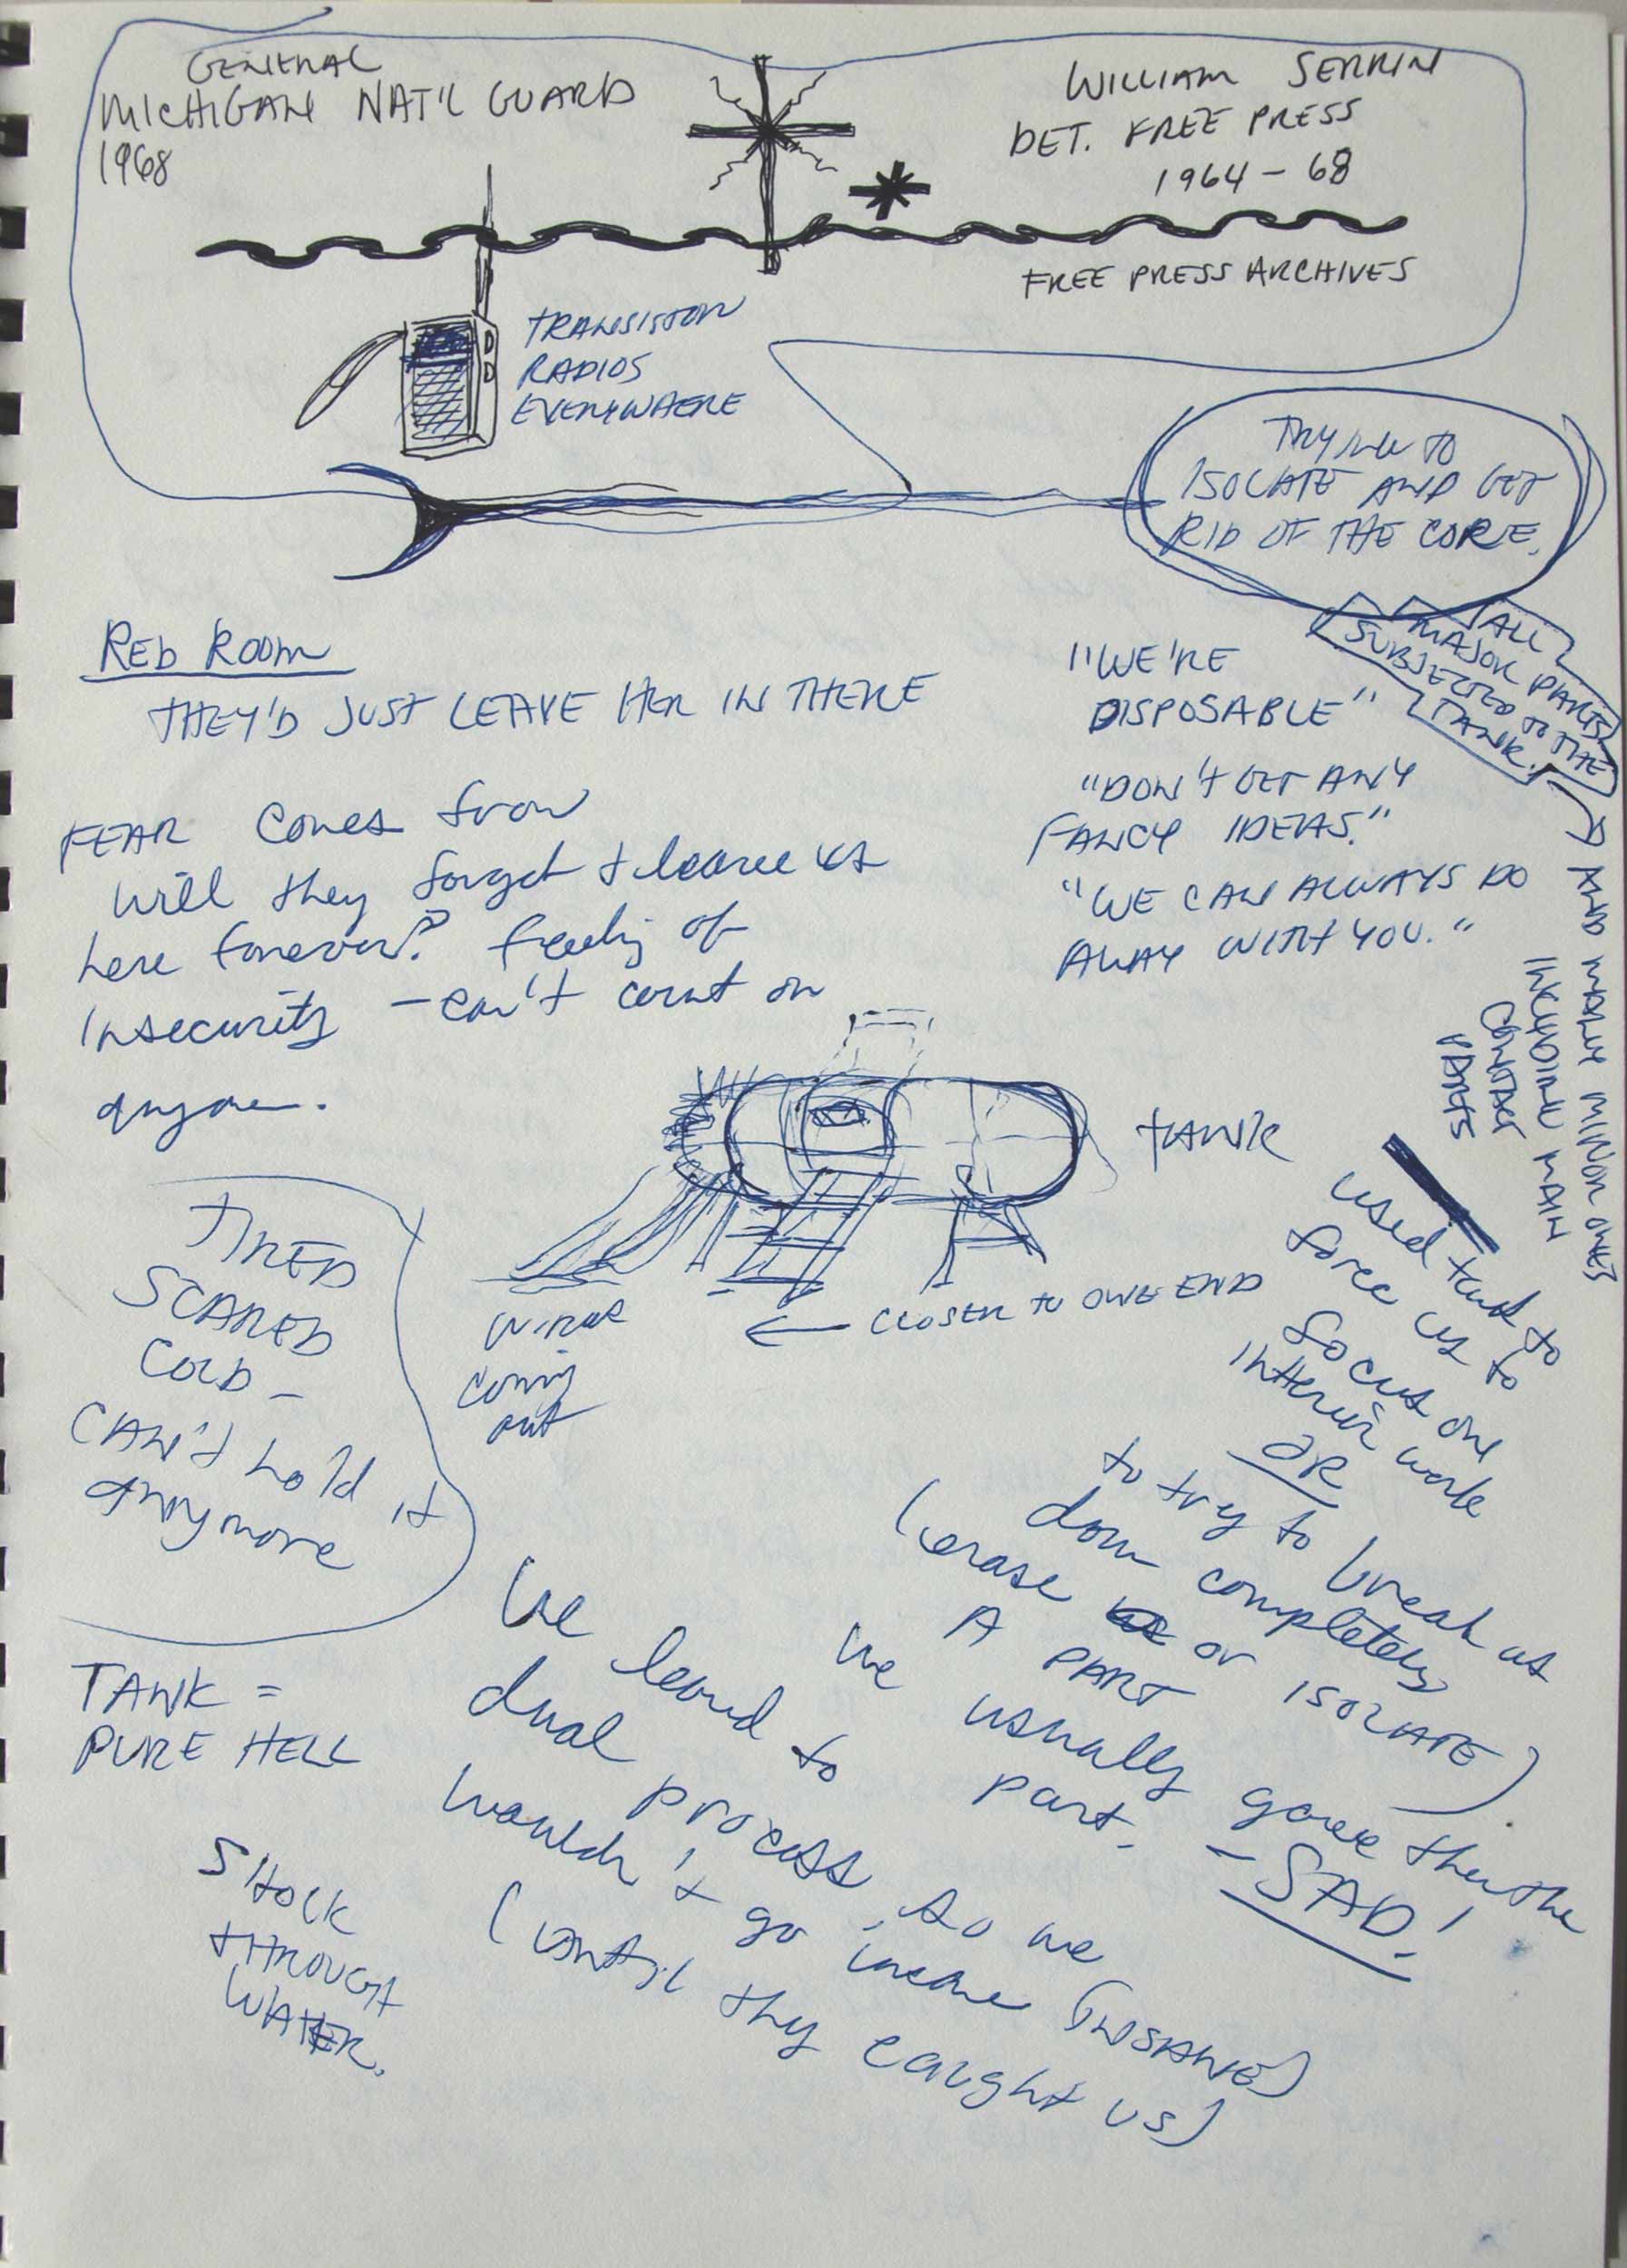 GENERAL
MICHIGAN NAT'L GUARD
1968
WILLIAM SERRIN
DET. FREE PRESS
1964 - 68
FREE PRESS ARCHIVES
TRANSISTOR
RADIOS
EVERYWHERE
TRYING TO
ISOLATE AND GET
RID OF THE CORE.
ALL
MAJOR PARTS
SUBJECTED TO THE
TANK.
AND MANY MINOR ONES
INCLUDING MAIN
CONTACT
PARTS
RED ROOM
THEY'D JUST LEAVE HER IN THERE
"WE'RE
DISPOSABLE"
"DON'T GET ANY
FANCY IDEAS."
"WE CAN ALWAYS DO
AWAY WITH YOU."
FEAR comes from
will they forget + leave us
here forever? feeling of
insecurity - can't count on
anyone.
TANK
WIRES
coming
out
← CLOSER TO ONE END
TIRED
SCARED
COLD -
CAN'T hold it
anymore
used tank to
force us to
focus on
interior work
OR
to try to break us
down completely
(erase or ISOLATE)
A PART
we usually gave them the
part. - SAD!
TANK =
PURE HELL
SHOCK
THROUGH
WATER.
We learned to
dual process, so we
wouldn't go insane (INSANE)
(until they caught us)